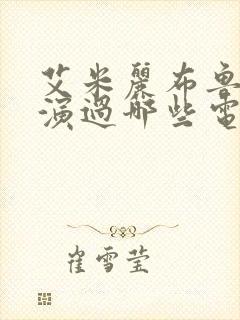 艾米麗布魯
演過哪些電
崔雪莹